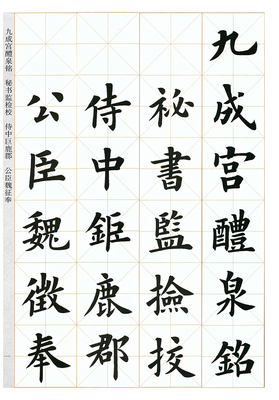 九成宮醴泉銘
祕書監撿挍
侍中鉅鹿郡
公臣魏徵奉
九成宫醴泉铭 秘书监检校 侍中巨鹿郡 公臣魏征奉